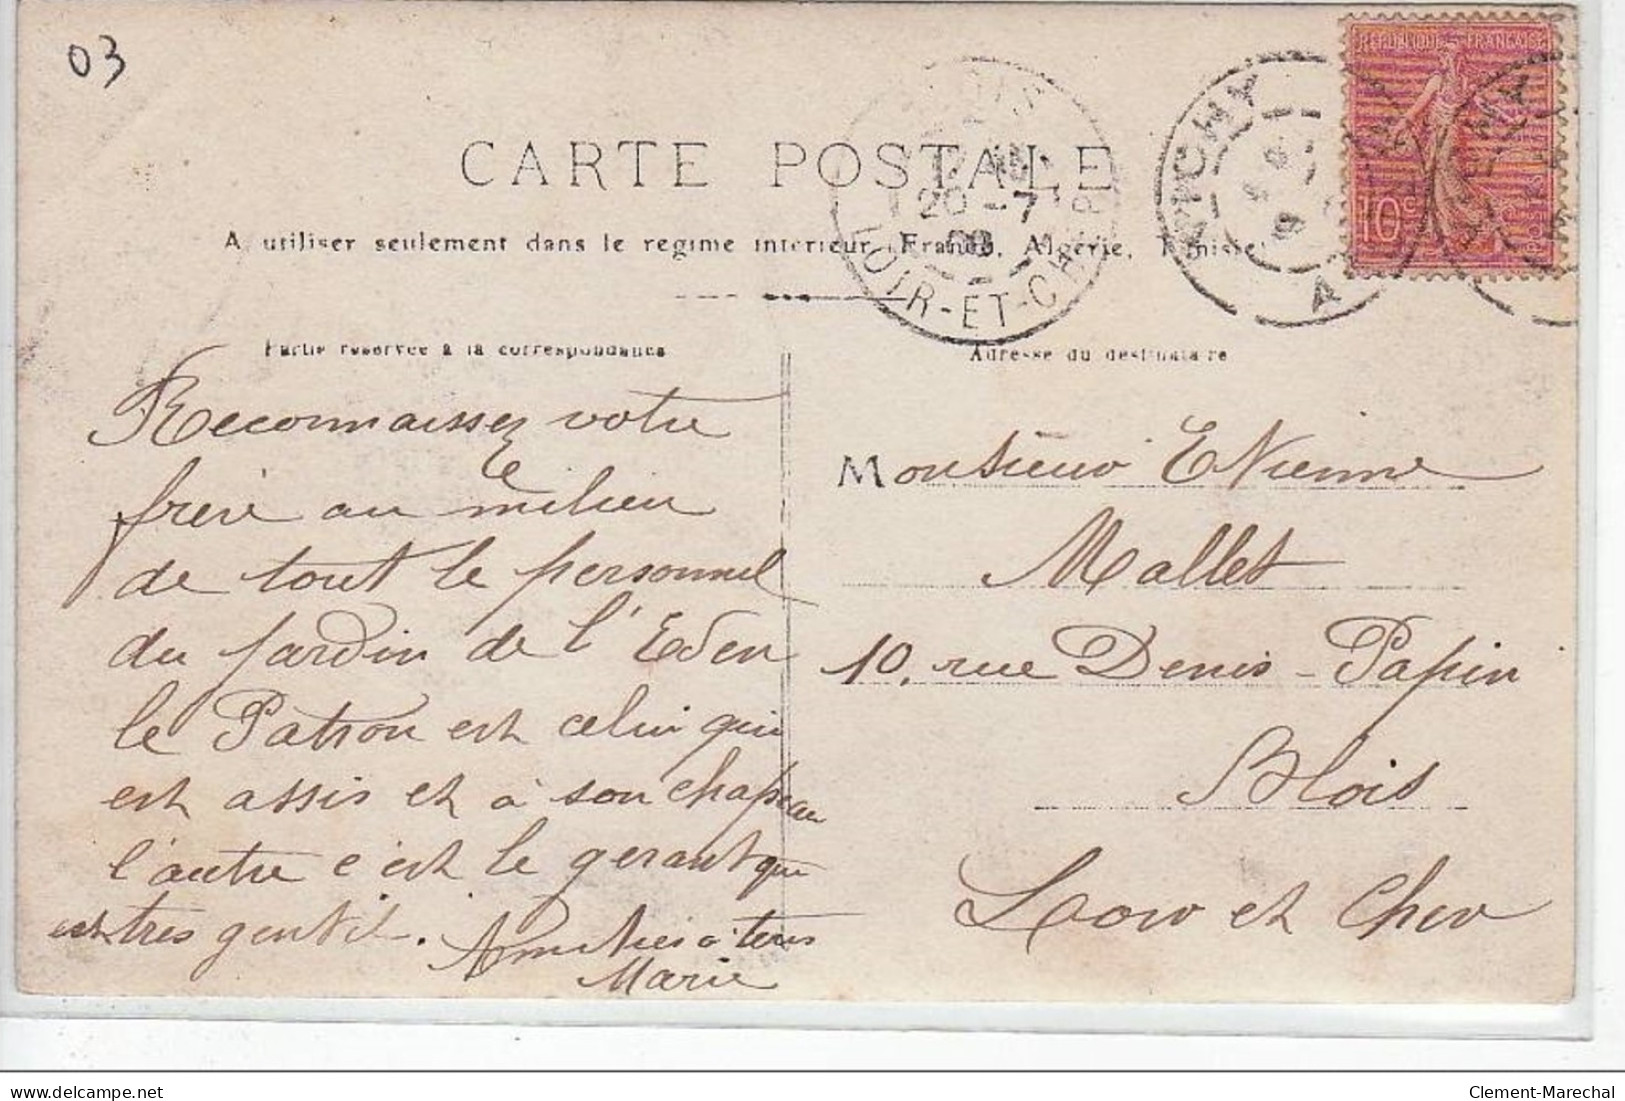 03
CARTE POSTALE
A utiliser seulement dans le régime intérieur (France, Algérie, Tunisie)
REPUBLIQUE FRANÇAISE
10c
POSTES
VICHY
20-7
LOIR-ET-CHER
Partie réservée à la correspondance
Adresse du destinataire
Reconnaissez votre
frère au milieu
de tout le personnel
du jardin de l'Eden
le Patron est celui qui
est assis et à son chapeau
l'autre c'est le gerant qui
est tres gentil. Amitiés à tous
Marie
Monsieur Etienne
Mallet
10, rue Denis-Papin
Blois
Loir et Cher
delcampe.net
Clement-Marechal